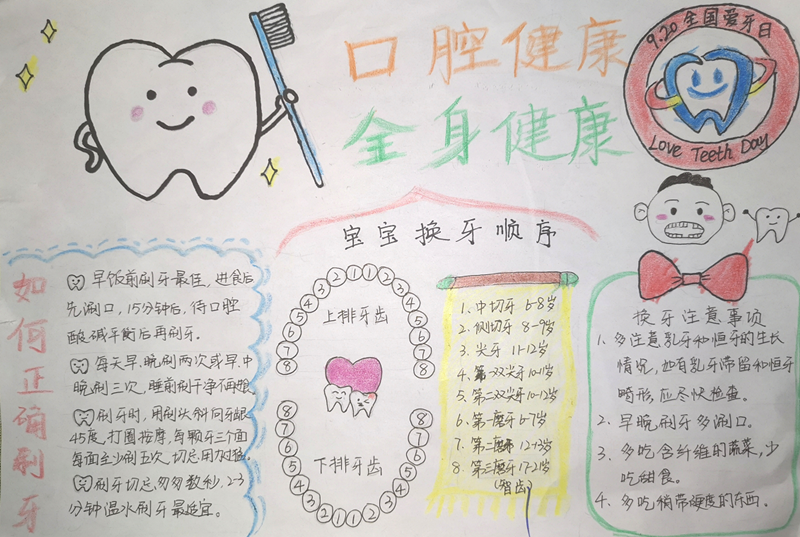 口腔健康
全身健康
9.20全国爱牙日
Love Teeth Day
如何正确刷牙
早饭前刷牙最佳，进食后
先漱口，15分钟后，待口腔
酸碱平衡后再刷牙.
每天早、晚刷两次或早.中
晚刷三次，睡前刷干净不再吃
刷牙时，用刷头斜向牙龈
45度，打圈按摩，每颗牙三个面
每面至少刷五次，切忌用力过猛.
刷牙切忌匆匆数秒，2-3
分钟温水刷牙最适宜。
宝宝换牙顺序
8 7 6 5 4 3 2 1 1 2 3 4 5 6 7 8
上排牙齿
下排牙齿
8 7 6 5 4 3 2 1 1 2 3 4 5 6 7 8
1、中切牙 6-8岁
2、侧切牙 8-9岁
3、尖牙 11-12岁
4、第一双尖牙 10-11岁
5、第二双尖牙 10-12岁
6、第一磨牙 6-7岁
7、第二磨牙 12-13岁
8、第三磨牙 17-21岁
(智齿)
换牙注意事项
1、多注意乳牙和恒牙的生长
情况，如有乳牙滞留和恒牙
畸形，应尽快检查。
2、早晚刷牙多漱口.
3、多吃含纤维的蔬菜，少
吃甜食。
4、多吃稍带硬度的东西.